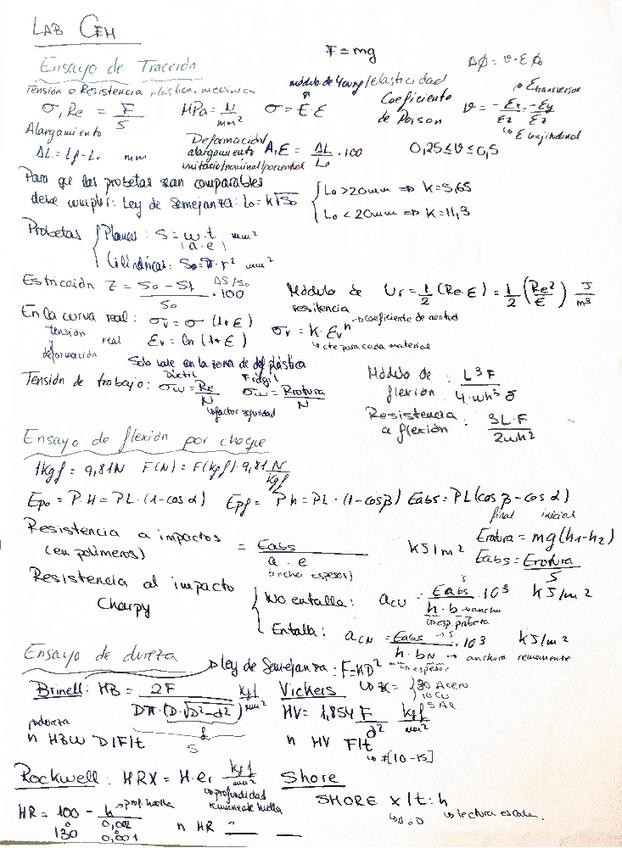 LAB CEM
F = mg
Ensayo de Tracción
Δø = υ·ε ø₀
Tensión o Resistencia plástica, mecánica
módulo de Young/elasticidad
σ, Re = F/S
MPa = N/mm²
σ = E·ε
Coeficiente de Poison
υ = -εx/εz = -εy/εz
ε transversal
ε longitudinal
Alargamiento
ΔL = Lf - L₀ mm
Deformación/alargamiento unitario/nominal/porcentual
A, ε = ΔL/L₀ · 100
0,25 ≤ υ ≤ 0,5
Para que las probetas sean comparables
debe cumplir: Ley de Semejanza: L₀ = k√S₀
L₀ > 20mm ⇒ k = 5,65
L₀ < 20mm ⇒ k = 11,3
Probetas
Planas: S = w·t mm²
(a·e)
Cilíndricas: S₀ = π·r² mm²
Estricción Z = S₀ - Sf/S₀ · 100
ΔS/S₀
Módulo de resilencia
Ur = 1/2 (Re·ε) = 1/2 (Re²/E) J/m³
En la curva real: σv = σ (1+ε)
tensión y deformación real
εv = ln (1+ε)
σv = K·εvⁿ
coeficiente de acritud
cte para cada material
Solo vale en la zona de def plástica
Tensión de trabajo:
Dúctil
σw = Re/N
Frágil
σw = Rrotura/N
factor seguridad
Módulo de flexión: L³F/4·wh³δ
Resistencia a flexión: 3L·F/2wh²
Ensayo de flexión por choque
1Kgf = 9,81N F(N) = F(kgf)·9,81 N/Kgf
Epo = P·H = PL·(1-cosα) Epf = P·h = PL·(1-cosβ) Eabs = PL(cosβ - cosα)
final inicial
Resistencia a impactos (en polímeros) = Eabs/a·e
(ancho espesor)
KJ/m²
Erotura = mg(h₁-h₂)
Eabs = Erotura/S
Resistencia al impacto Charpy
No entalla: acu = Eabs/h·b · 10³ KJ/m²
ancho
esp. probeta
Entalla: acN = Eabs/h·bN · 10³ KJ/m²
espesor
anchura remanente
Ensayo de dureza
Ley de Semejanza: F = KD²
K = 30 Acero
10 Cu
5 Al
Brinell: HB = 2F/Dπ·(D-√D²-d²) kgf/mm²
S
Vickers
HV = 1,854 F/d² kgf/mm²
n dureza
n HBW D/F/t
n HV F/t
t[10-15]
Rockwell: HRX = H·er kgf/mm²
profundidad remanente huella
Shore
SHORE X/t:h
A o D
lectura escala.
HR = 100 - h/0,002
prof. huella
130 0,001
n HR